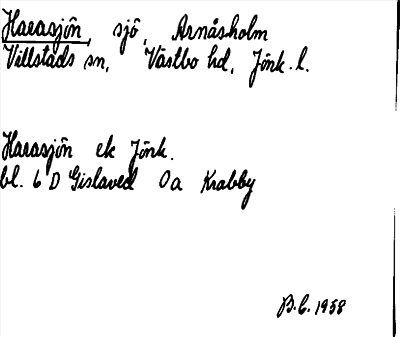 Harasjön, sjö, Arnåsholm
Villstads sn, Västbo hd, Jönk. l.
Harasjön ek Jönk.
bl. 6 D Gislaved 0a Krabby
B.C. 1958